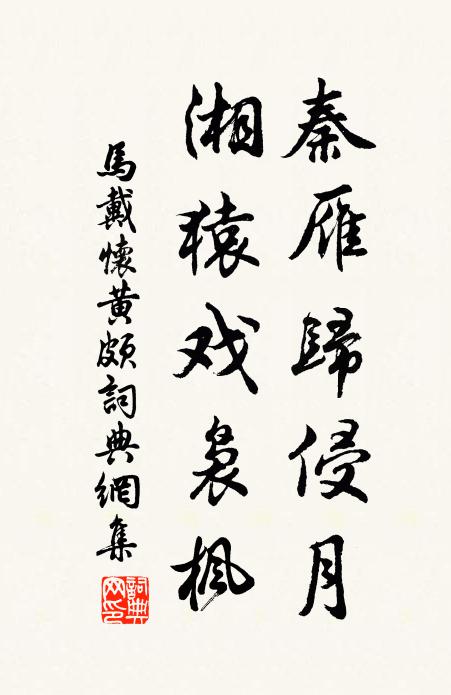 秦雁歸侵月
湘猿戏裊楓
馬戴懷黄頗詞典網集
詞典网印